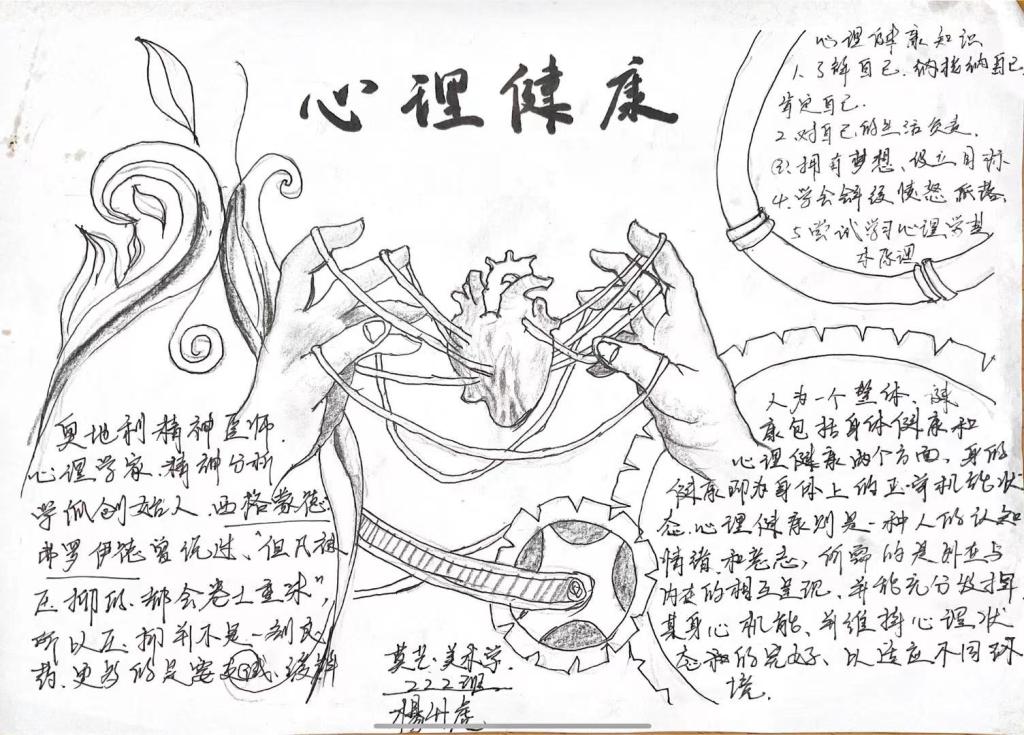 心理健康
心理健康知识
1、了解自己、纳接纳自己
肯定自己.
2、对自己的生活负责.
③、拥有梦想、设立目标
4、学会舒缓愤怒
5、尝试学习心理学基
本原理
奥地利精神医师.
心理学家.精神分析
学派创始人.西格蒙德
弗罗伊德曾说过、“但凡被
压抑的.都会卷土重来”,
所以压抑并不是一剂良
药.更多的是需要 缓解
人为一个整体、健
康包括身体健康和
心理健康两个方面,身的
健康即为身体上的正常机能状
态.心理健康则是一种人的认知
情绪.和老态,所需的是外在与
内在的相互呈现.并能充分发挥
其身心机能、并维持心理状
态和的完好、以适应不同环
境.
美术学.
222班